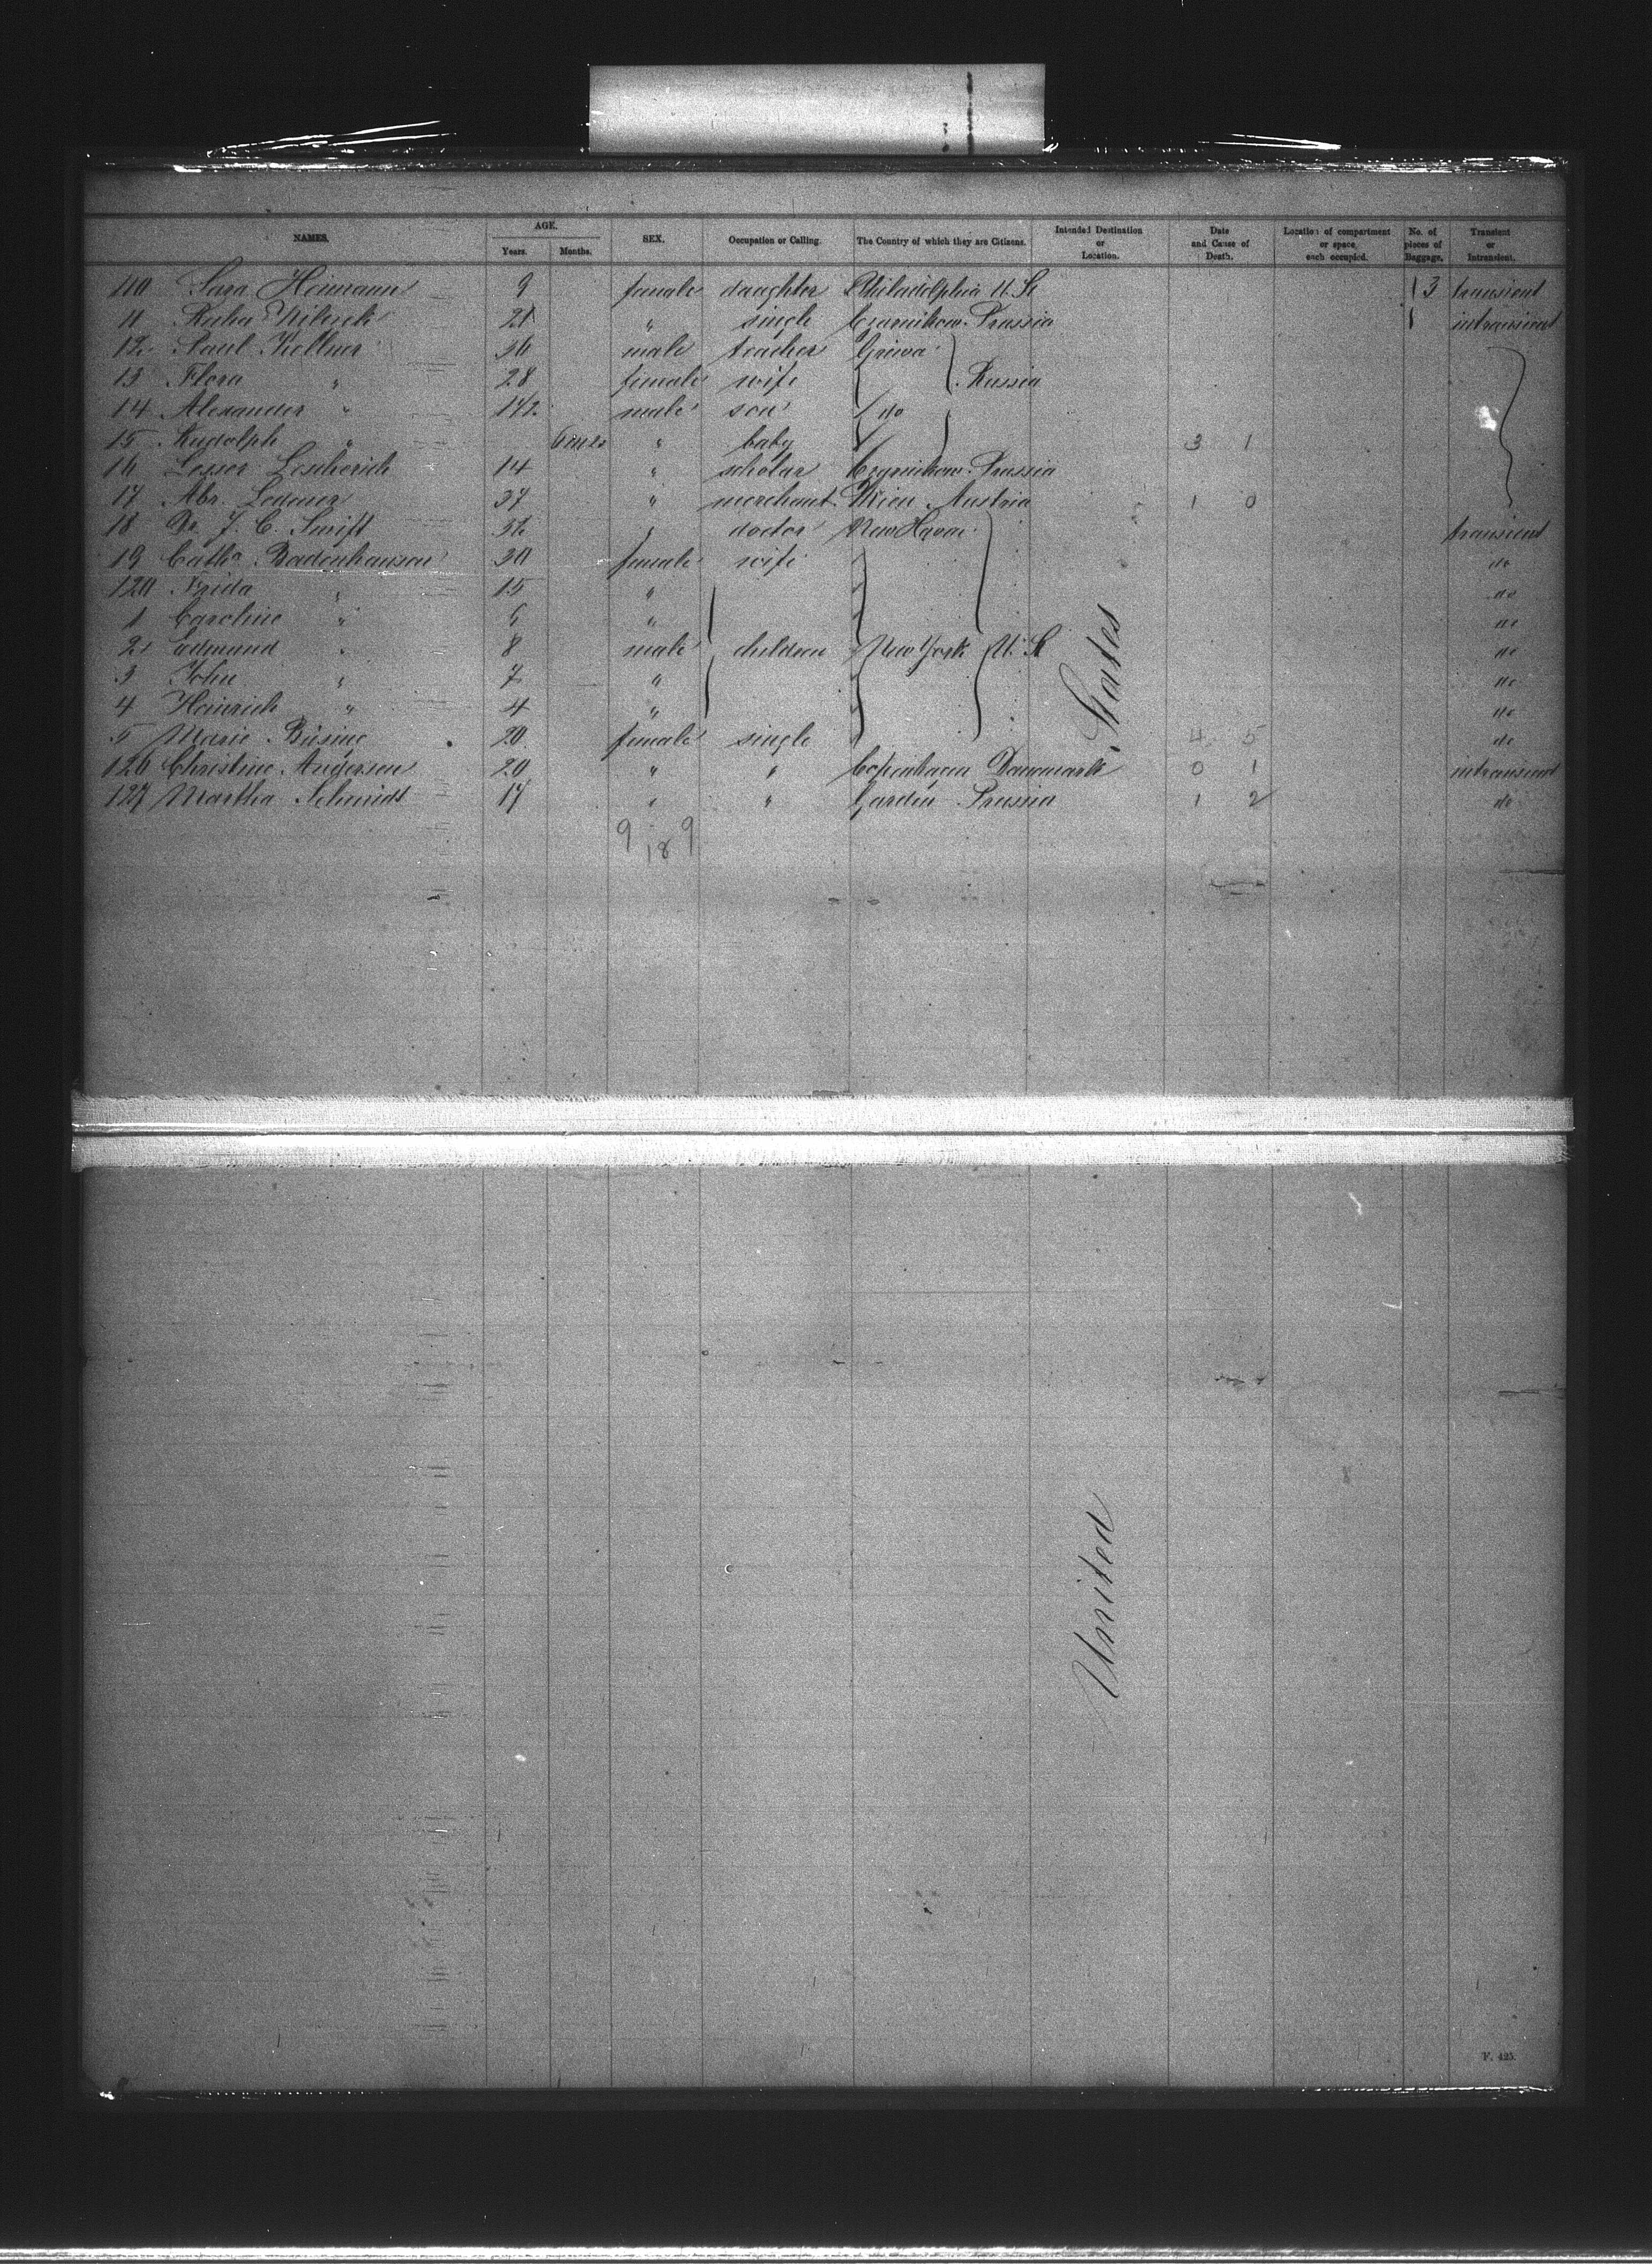 NAMES. AGE. Years. Months. SEX. Occupation or Calling. The Country of which they are Citizens. Intended Destination or Location. Date and Cause of Death. Location of compartment or space, each occupied. No. of pieces of Baggage. Transient or Intransient.
110 Sara Heimann 9 female daughter Philadelphia U. St 3 transient
11 21 " single Czarnikow Prussia 1 intransient
12 Paul Kellner 36 male teacher
13 Flora " 28 female wife Russia
14 Alexander " 1 1/2 male son do
15 Rudolph " " baby 3 1
16 Lesser 14 " scholar Czarnikow Prussia
17 Abr. 37 " merchant Wien Austria 1 0
18 Dr. J. C. Swift doctor New Haven transient
19 Catha Badenhausen 30 female wife do
120 Frida " 15 " do
1 Caroline " 6 " do
2 Edmund " 8 male children New York U. St do
3 John " 7 " do
4 Heinrich " 4 " do
5 Marie Büsing 20 female single 4 5 do
126 Christine Andersen 20 " " Copenhagen Danmark 0 1 intransient
127 Martha Schmidt 17 " " Gardin Prussia 1 2 do
9 18 9
United States
F. 425.